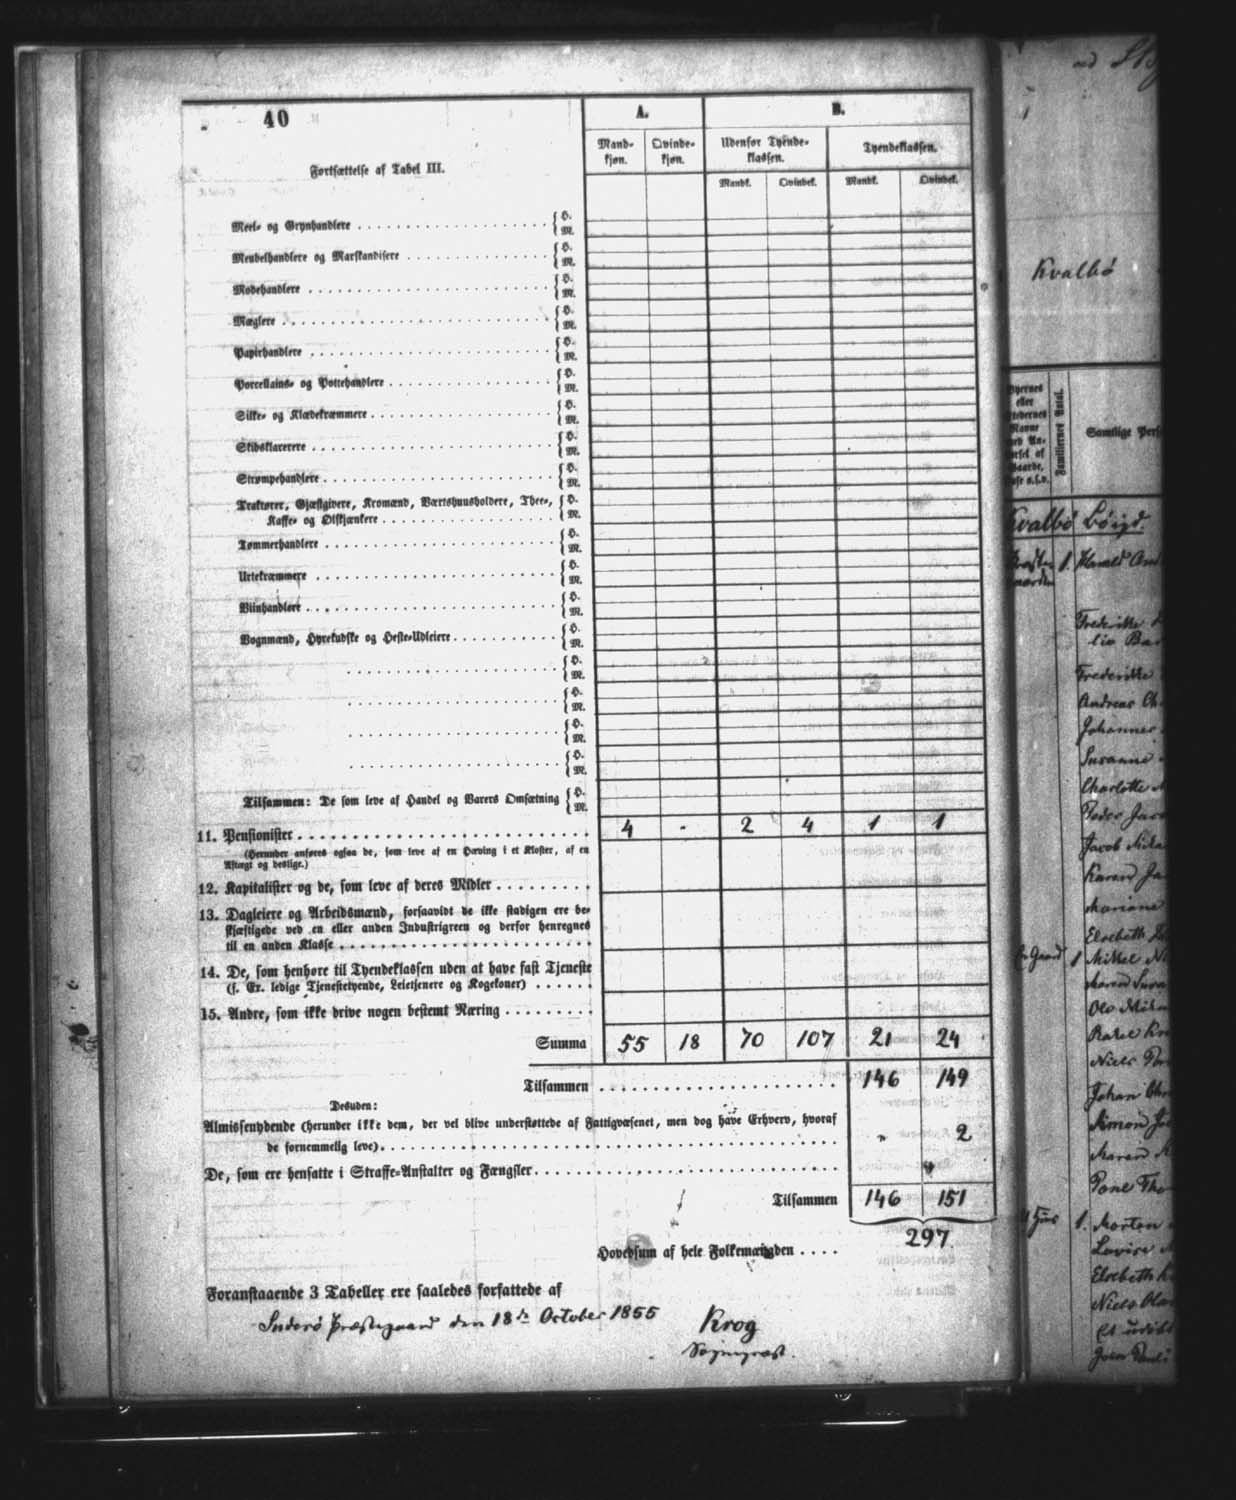 40
A.
B.
Mand-
kjøn.
Qvinde-
kjøn.
Udenfor Tyende-
klassen.
Tyendeklassen.
Fortsættelse af Tabel III.
Mandk. Qvindek. Mandk. Qvindek.
Meel- og Grynhandlere . . . . { H.
M.
Meubelhandlere og Marskandisere . . . . { H.
M.
Modehandlere . . . . { H.
M.
Mæglere . . . . { H.
M.
Papirhandlere . . . . { H.
M.
Porcellains- og Pottehandlere . . . . { H.
M.
Silke- og Klædekræmmere . . . . { H.
M.
Skibsklarerere . . . . { H.
M.
Strømpehandlere . . . . { H.
M.
Traktører, Gjæstgivere, Kromænd, Værtshuusholdere, Thee-, { H.
Kaffe- og Ølskjænkere . . . . M.
Tømmerhandlere . . . . { H.
M.
Urtekræmmere . . . . { H.
M.
Viinhandlere . . . . { H.
M.
Vognmænd, Hyrekudske og Heste-Udleiere . . . . { H.
M.
. . . . { H.
M.
. . . . { H.
M.
. . . . { H.
M.
. . . . { H.
M.
Tilsammen: De som leve af Handel og Varers Omsætning { H.
M.
11. Pensionister . . . . 4 - 2 4 1 1
(Herunder anføres ogsaa de, som leve af en Hæving i et Kloster, af en
Aftægt og deslige.)
12. Kapitalister og de, som leve af deres Midler . . . .
13. Dagleiere og Arbeidsmænd, forsaavidt de ikke stadigen ere be-
skjæftigede ved en eller anden Industrigreen og derfor henregnes
til en anden Klasse . . . .
14. De, som henhøre til Tyendeklassen uden at have fast Tjeneste
(f. Ex. ledige Tjenestetyende, Leietjenere og Kogekoner) . . . .
15. Andre, som ikke drive nogen bestemt Næring . . . .
Summa 55 18 70 107 21 24
Tilsammen . . . . 146 149
Desuden:
Almissenydende (herunder ikke dem, der vel blive understøttede af Fattigvæsenet, men dog have Erhverv, hvoraf
de fornemmelig leve) . . . . " 2
De, som ere hensatte i Straffe-Anstalter og Fængsler . . . . "
Tilsammen 146 151
297
Hovedsum af hele Folkemængden . . . .
Foranstaaende 3 Tabeller ere saaledes forfattede af
Suderø Præstegaard den 18de October 1855
Krog
Sognepræst.
Kvalbø
Byernes
eller
Stedernes
Navne
Familiernes Antal.
Samlige Pers
Kvalbø Bøigd.
1. Harald
Frederikke
Frederikke
Andreas Ch
Johannes
Susanne
Charlotte
Peder
Jacob
Karen
Mariane
Elsebeth
1 Mikkel
Maren
Ole
Rakel
Niels
Johan
Simon
Maren
Tone
1. Morten
Lovise
Elsebeth
Niels